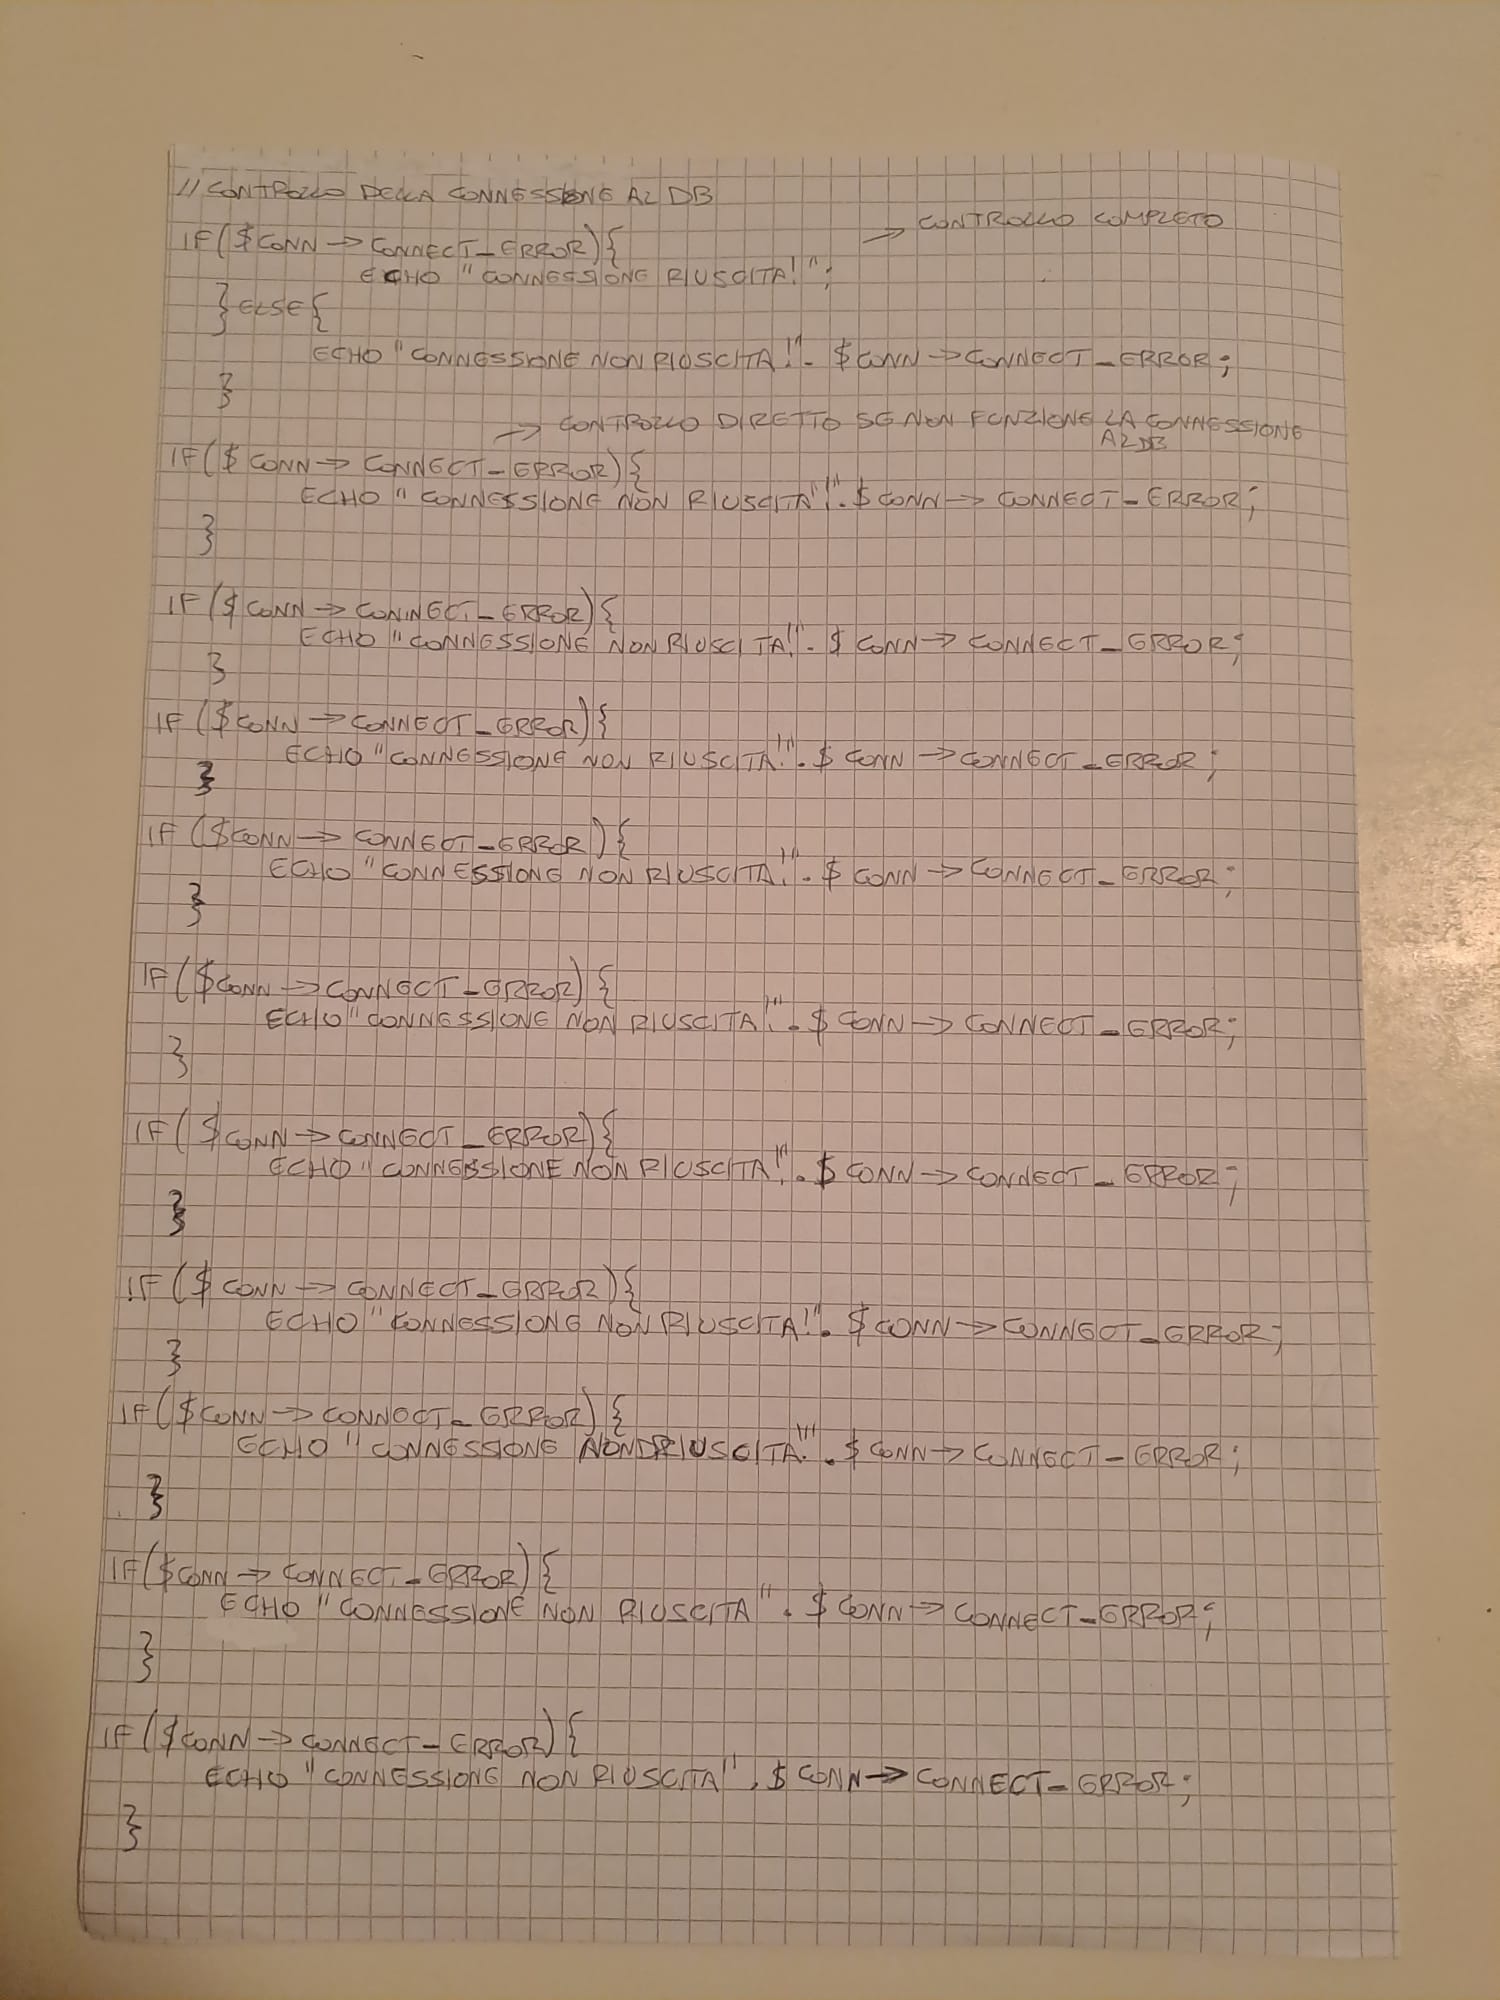 // CONTROLLO DELLA CONNESSIONE AL DB
→ CONTROLLO COMPLETO
IF($CONN → CONNECT_ERROR){
ECHO "CONNESSIONE RIUSCITA!";
}ELSE{
ECHO "CONNESSIONE NON RIUSCITA!". $CONN → CONNECT_ERROR;
}
→ CONTROLLO DIRETTO SE NON FUNZIONE LA CONNESSIONE
AL DB
IF($CONN → CONNECT_ERROR){
ECHO "CONNESSIONE NON RIUSCITA!". $CONN → CONNECT_ERROR;
}
IF($CONN → CONNECT_ERROR){
ECHO "CONNESSIONE NON RIUSCITA!". $CONN → CONNECT_ERROR;
}
IF($CONN → CONNECT_ERROR){
ECHO "CONNESSIONE NON RIUSCITA!". $CONN → CONNECT_ERROR;
}
IF($CONN → CONNECT_ERROR){
ECHO "CONNESSIONE NON RIUSCITA!". $CONN → CONNECT_ERROR;
}
IF($CONN → CONNECT_ERROR){
ECHO "CONNESSIONE NON RIUSCITA!". $CONN → CONNECT_ERROR;
}
IF($CONN → CONNECT_ERROR){
ECHO "CONNESSIONE NON RIUSCITA!". $CONN → CONNECT_ERROR;
}
IF($CONN → CONNECT_ERROR){
ECHO "CONNESSIONE NON RIUSCITA!". $CONN → CONNECT_ERROR;
}
IF($CONN → CONNECT_ERROR){
ECHO "CONNESSIONE NON RIUSCITA!". $CONN → CONNECT_ERROR;
}
IF($CONN → CONNECT_ERROR){
ECHO "CONNESSIONE NON RIUSCITA". $CONN → CONNECT_ERROR;
}
IF($CONN → CONNECT_ERROR){
ECHO "CONNESSIONE NON RIUSCITA". $CONN → CONNECT_ERROR;
}